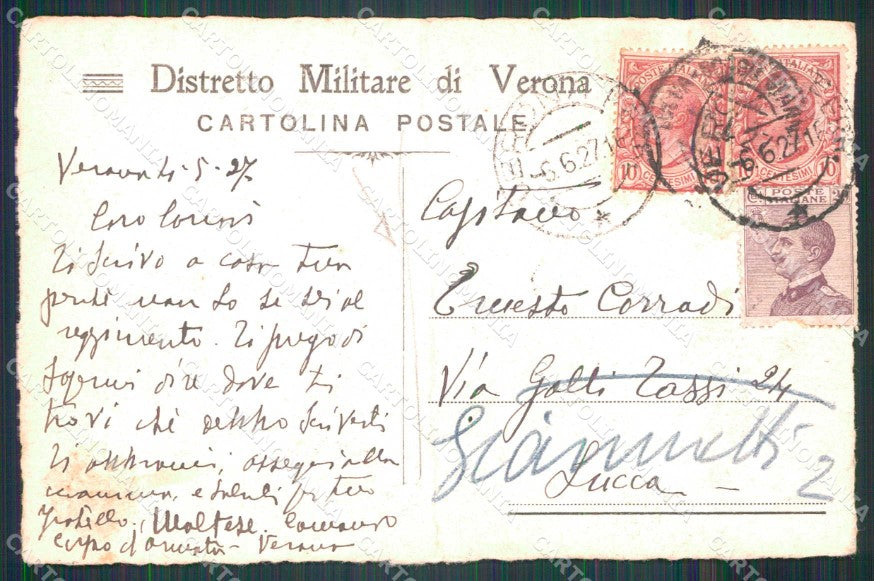 Distretto Militare di Verona
CARTOLINA POSTALE
Verona li 5-27
Caro Corradi
Ti scrivo a casa tua
perché non so se sei al
reggimento. Ti prego di
sapermi dire dove ti
trovi chè debbo scriverti
Ti abbraccio, ossequi alla
mamma, e saluti pr tuo
fratello. Maltese. Comando
Corpo d'armata - Verona
Capitano
Ernesto Corradi
Via Galli Tassi 24
Giannotti 2
Lucca -
6.6.27.15
6.6.27.15
POSTE ITALIANE
10 CENTESIMI 10
POSTE ITALIANE
10 CENTESIMI 10
POSTE
ITALIANE
CARTOLINOMANIA